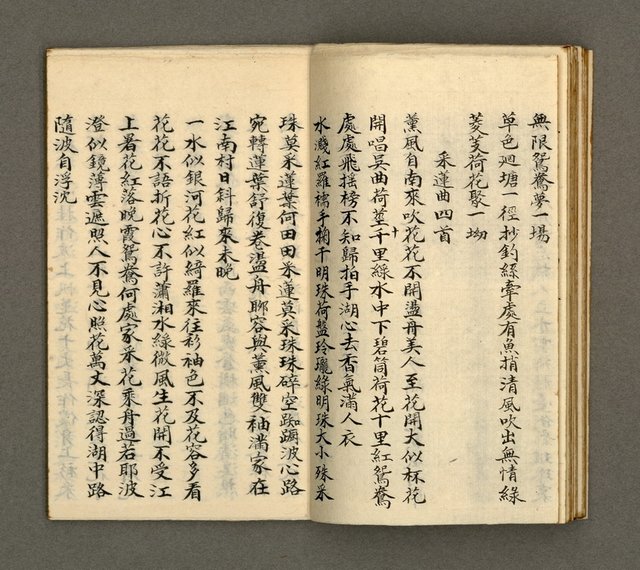 無限鴛鴦夢一場
草色迴塘一徑抄釣絲牽處有魚捎清風吹出無情綠
菱芰荷花聚一坳
采蓮曲四首
薰風自南來吹花花不開盪舟美人至花開大似杯花
開唱吳曲荷莖千里綠水中下碧筒荷花十里紅鴛鴦
處處飛搖榜不知歸拍手湖心去香氣滿人衣
水濺紅羅襦手掬千明珠荷蓋玲瓏綠明珠大小殊采
珠莫采蓮葉何田田采蓮莫采珠珠碎空踟躕波心路
宛轉蓮葉舒復卷盪舟聊容與薰風雙袖滿家在
江南村日斜歸來未晚
一水似銀河花紅似綺羅來往衫袖色不及花容多看
花花不語折花心不許瀟湘水綠微風生花開不受江
上暑花紅落晚霞鴛鴦何處家采花乘舟過若耶波
澄似鏡薄雲遮照人不見心照花萬丈深認得湖中路
隨波自浮沉